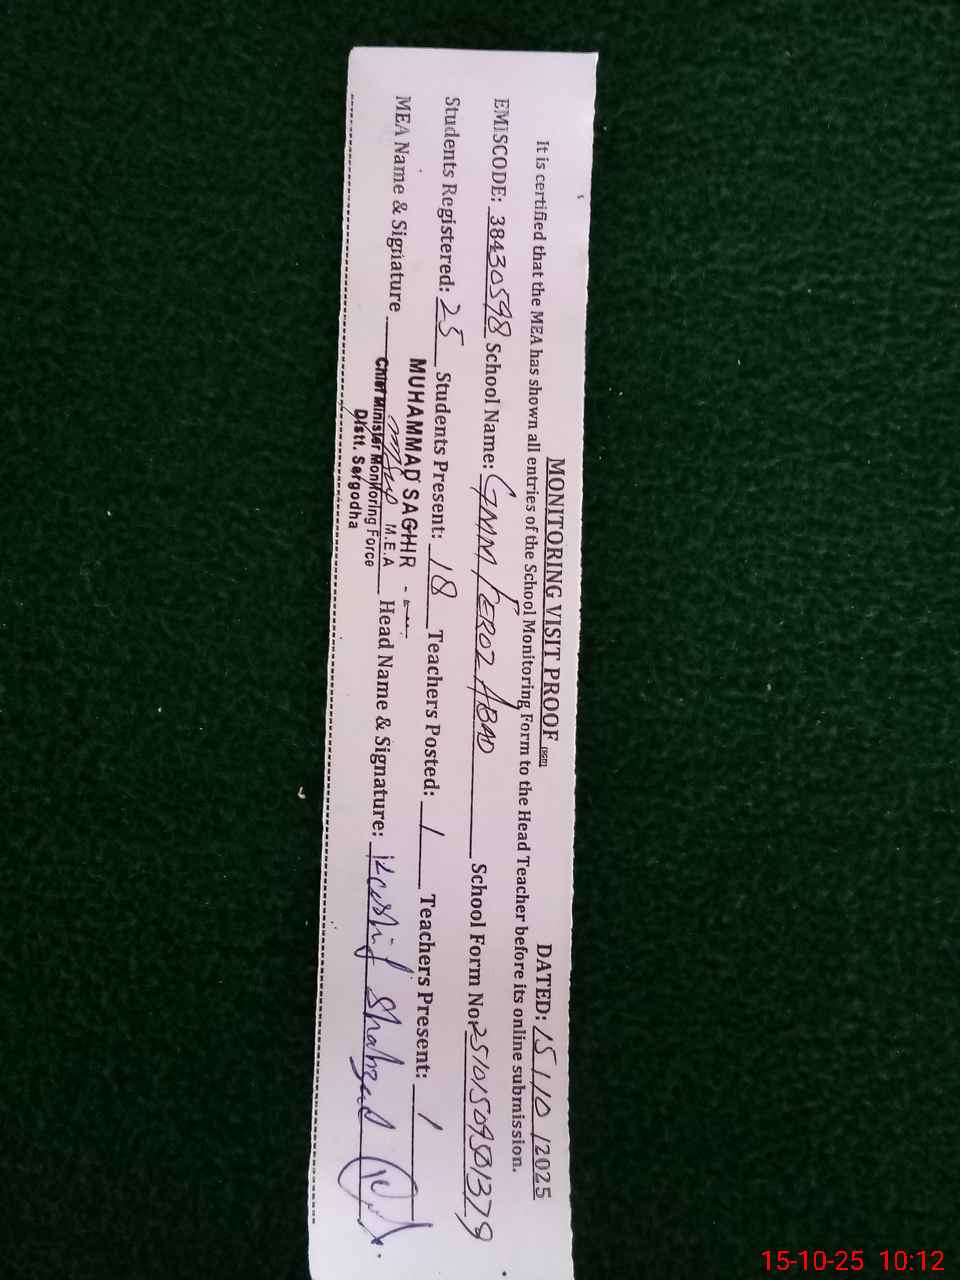 MONITORING VISIT PROOF
DATED: 15/10/2025
It is certified that the MEA has shown all entries of the School Monitoring Form to the Head Teacher before its online submission.
EMISCODE: 38430598 School Name: GMM FEROZ ABAD School Form No: 25101509501379
Students Registered: 25 Students Present: 18 Teachers Posted: 1 Teachers Present: 1
MUHAMMAD SAGHIR
MEA Name & Signature M.E.A Head Name & Signature: Kashif Shahzad
Chief Minister Monitoring Force
Distt. Sargodha
15-10-25 10:12